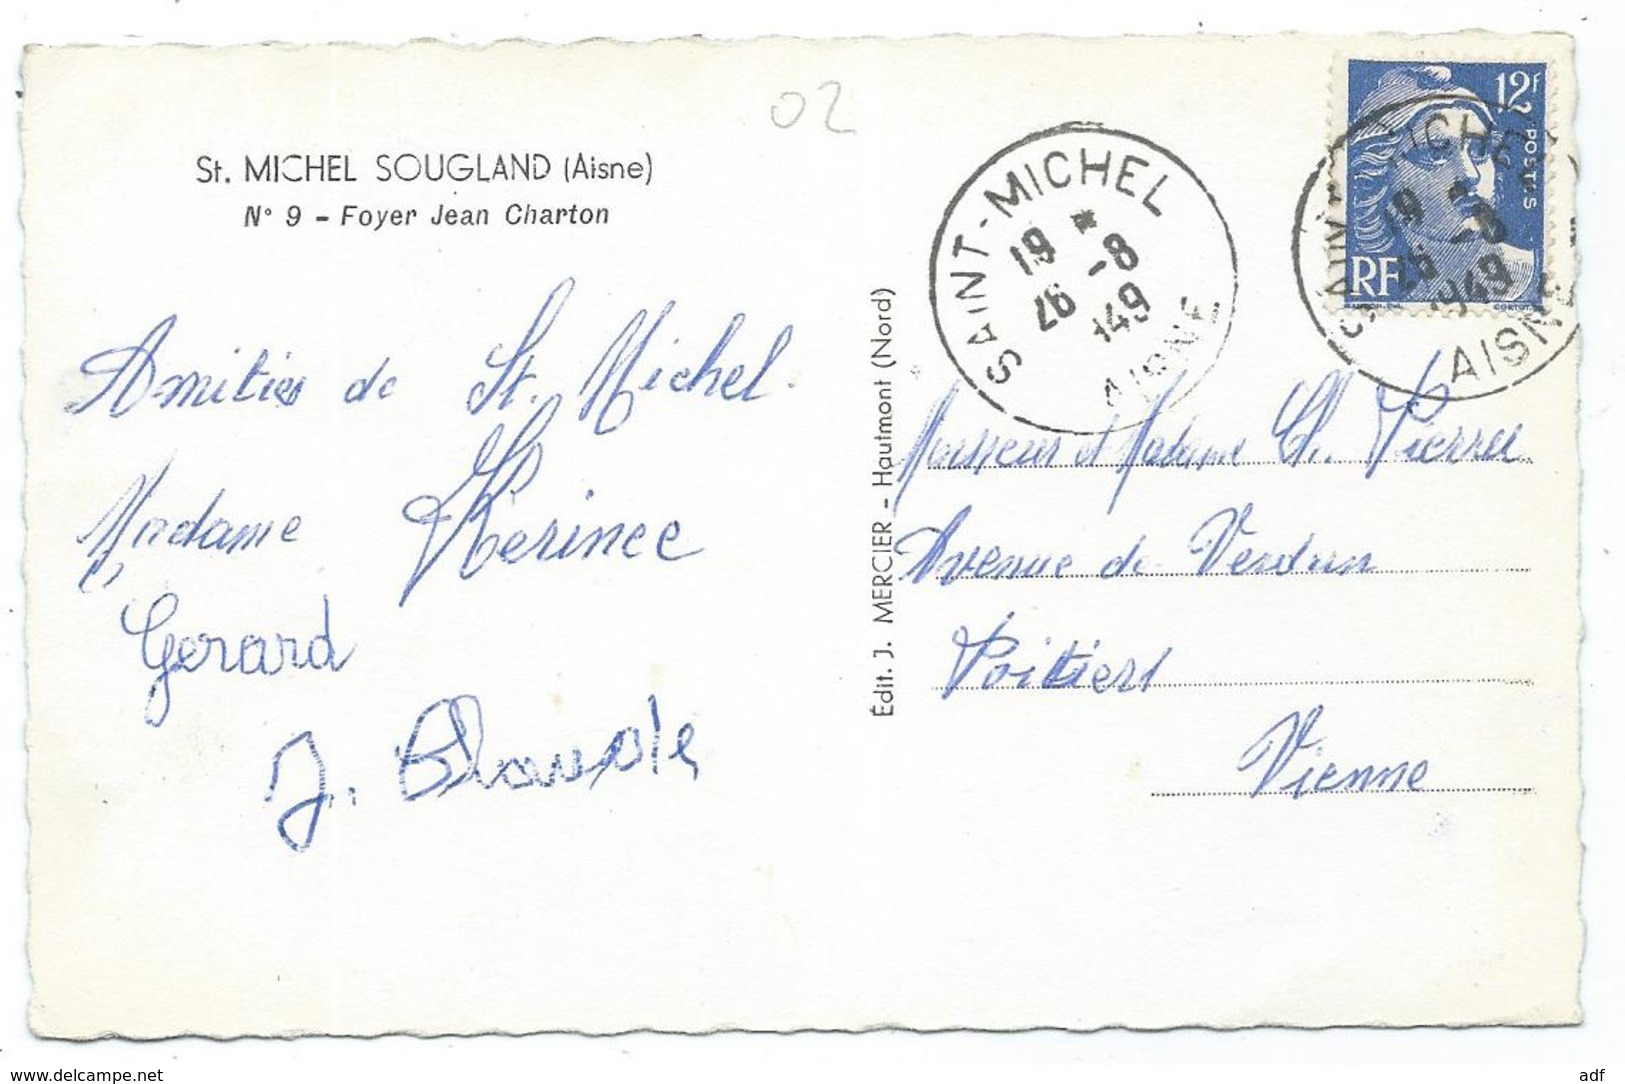 02
St. MICHEL SOUGLAND (Aisne)
N° 9 - Foyer Jean Charton
Amitiés de St. Michel.
Madame Kerinec
Gerard
J.
Édit. J. MERCIER - Hautmont (Nord)
SAINT-MICHEL
19 *
26 -8
1949
AISNE
12F
POSTES
RF
MICHEL
19
26 -8
1949
AISNE
Monsieur et Madame Ch. Pierre
Avenue de Verdun
Poitiers
Vienne
www.delcampe.net
adf